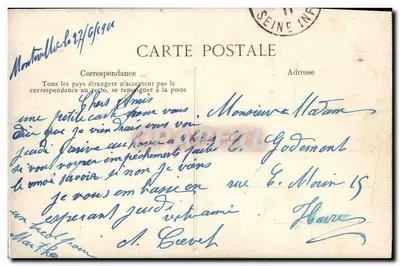 11
SEINE INF
Montivilliers le 27/6/1911
CARTE POSTALE
Correspondance
Tous les pays étrangers n'acceptent pas la
correspondance au recto, se renseigner à la poste
Adresse
Chers Amis
une petite carte pour vous
dire que je viendrais vous voir
jeudi j'arrive au
si vous voyez empêchements faites
le moi savoir si non je viens
je vous embrasse en
espérant jeudi
votre amie
A.
un
Monsieur & Madame
G. Godement
rue E. Morin 15
Havre